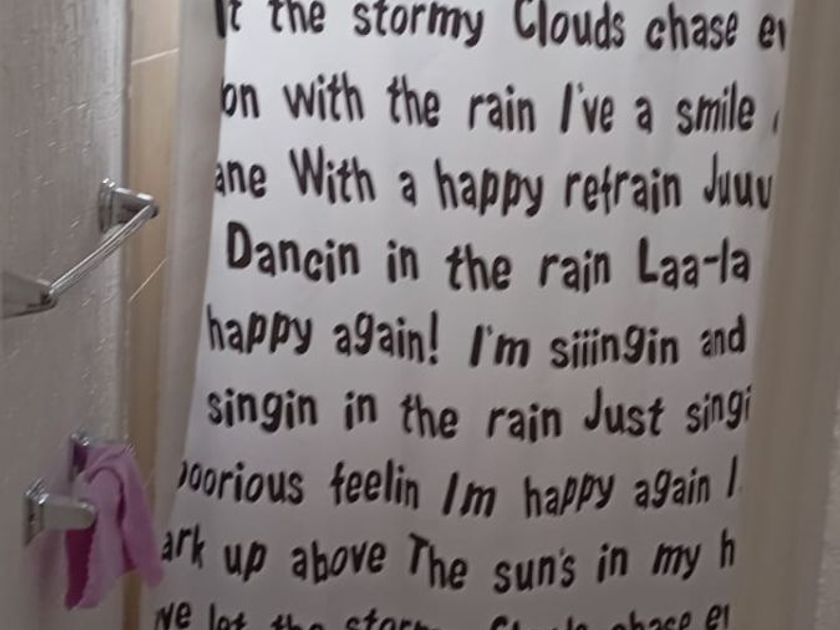 the stormy Clouds chase
on with the rain I've a smile
ane With a happy refrain Juuu
Dancin in the rain Laa-la
happy again! I'm siiingin and
singin in the rain Just singi
oorious feelin Im happy again I
ark up above The sun's in my h
ve let the stormy Clouds chase